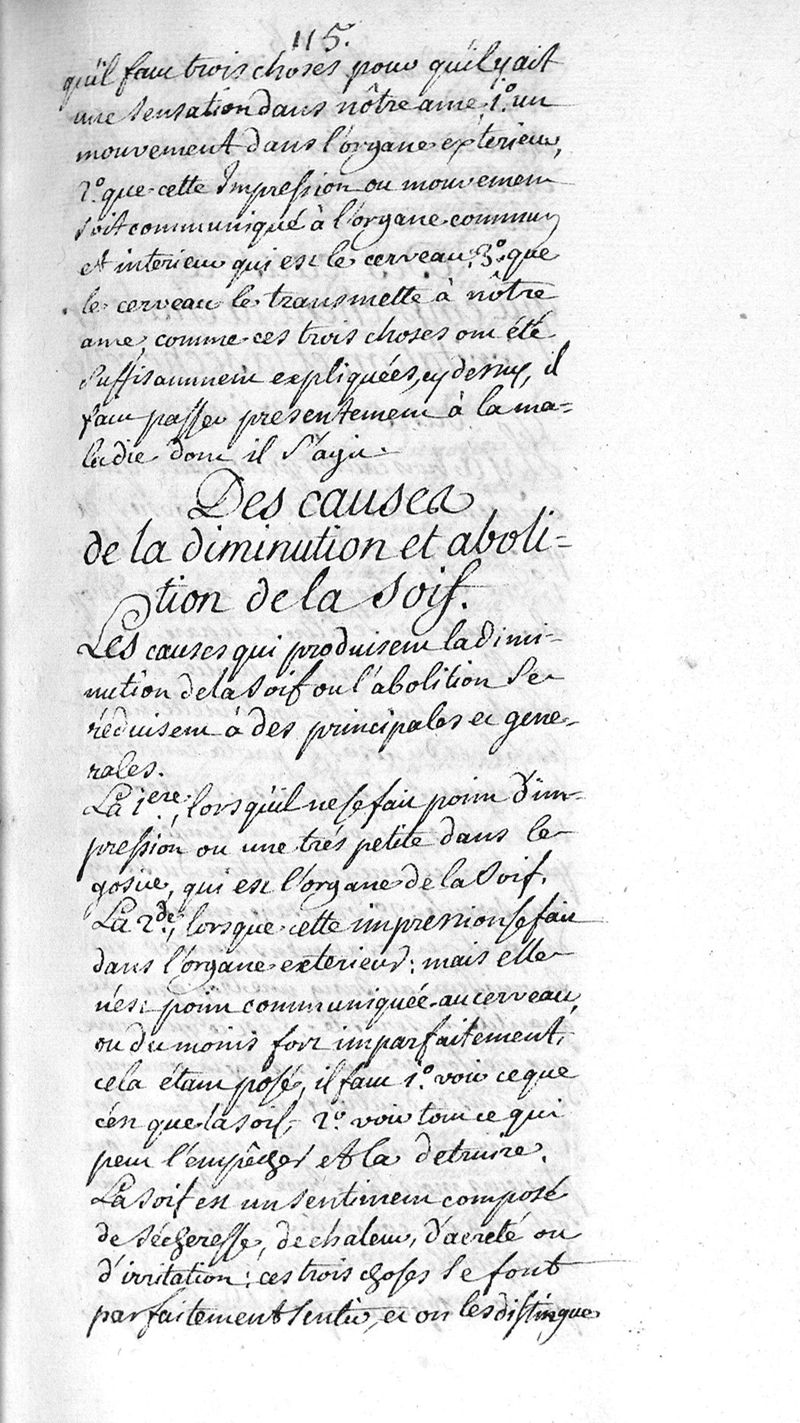 115.
qu'il faut trois choses pour qu'il y ait
une sensation dans nôtre ame, 1.° un
mouvement dans l'organe exterieur,
2.° que cette Impression ou mouvement
soit communiqué à l'organe commun
et interieur qui est le cerveau, 3.° que
le cerveau le transmette à nôtre
ame, comme ces trois choses ont été
suffisamment expliquées, cy dessus, il
faut passer presentement à la ma=
ladie dont il s'agit.
Des causes
de la diminution et aboli=
tion de la soif.
Les causes qui produisent la dimi=
nution de la soif ou l'abolition se
réduisent à des principales et gene=
rales.
La 1ere, lorsqu'il ne se fait point d'im=
pression ou une trés petite dans le
gosier, qui est l'organe de la soif.
La 2.de, lorsque cette impression se fait
dans l'organe exterieur; mais elle
n'est point communiquée au cerveau,
ou du moins fort imparfaitement,
cela étant posé, il faut 1.° voir ce que
c'est que la soif, 2.° voir tout ce qui
peut l'empêcher et la detruire.
La soif est un sentiment composé
de sécheresse, de chaleur, d'acreté ou
d'irritation: ces trois choses se font
parfaitement sentir, et on les distingue